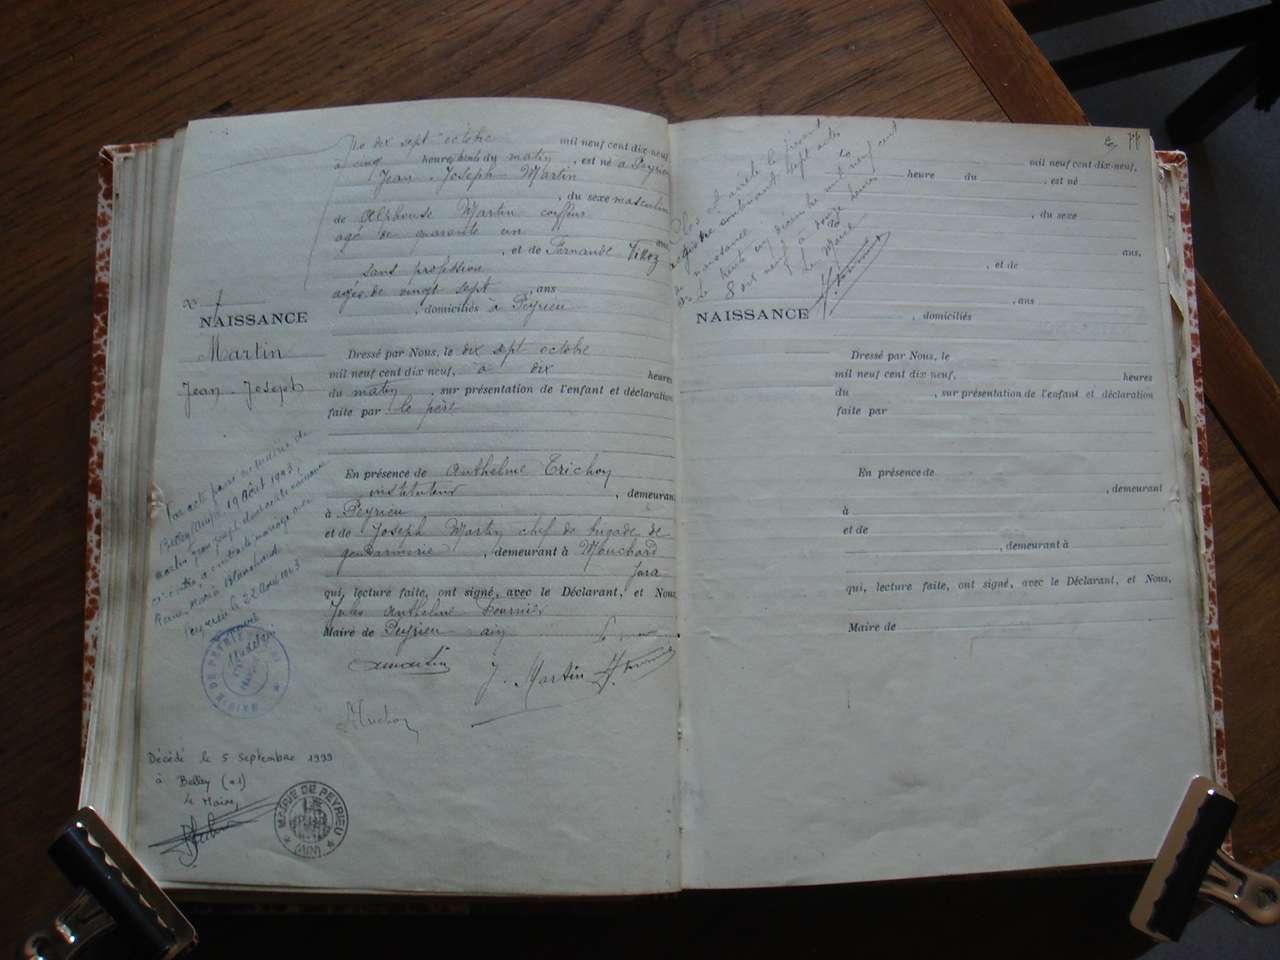 Le dix sept octobre mil neuf cent dix-neuf
à cinq heure du matin, est né à Peyrieu
Jean-Joseph Martin
, du sexe masculin
de Alphonse Martin coiffeur
agé de quarante un ans,
, et de Fernande Villoz
sans profession
agés de vingt sept, ans
, domiciliés à Peyrieu
NAISSANCE
Martin
Jean-Joseph
Dressé par Nous, le dix sept octobre
mil neuf cent dix neuf, à dix heures
du matin, sur présentation de l'enfant et déclaration
faite par le père
En présence de Anthelme Trichoy
instituteur, demeurant
à Peyrieu
et de Joseph Martin chef de brigade de
gendarmerie, demeurant à Mouchard
Jura
qui, lecture faite, ont signé, avec le Déclarant, et Nous
Jules Anthelme Fournier
Maire de Peyrieu ain
amartin
J. Martin
Par acte passé
Belley (Ain) 19 Août 1943,
Martin Jean Joseph
a contracté mariage avec
Maria Blanchard
Peyrieu le 22 Août 1943
MAIRIE DE PEYRIEU
Décédé le 5 septembre 1999
à Belley (01)
Le Maire,
MAIRIE DE PEYRIEU
(AIN)
Clos et arrêté le présent
registre contenant sept actes
de naissance
le trente un décembre mil neuf cent
dix neuf à douze heures
Le Maire
Le
mil neuf cent dix-neuf,
heure du, est né
, du sexe
de
ans,
, et de
, ans
, domiciliés
NAISSANCE
Dressé par Nous, le
mil neuf cent dix neuf, heures
du, sur présentation de l'enfant et déclaration
faite par
En présence de
, demeurant
à
et de
, demeurant à
qui, lecture faite, ont signé, avec le Déclarant, et Nous,
Maire de